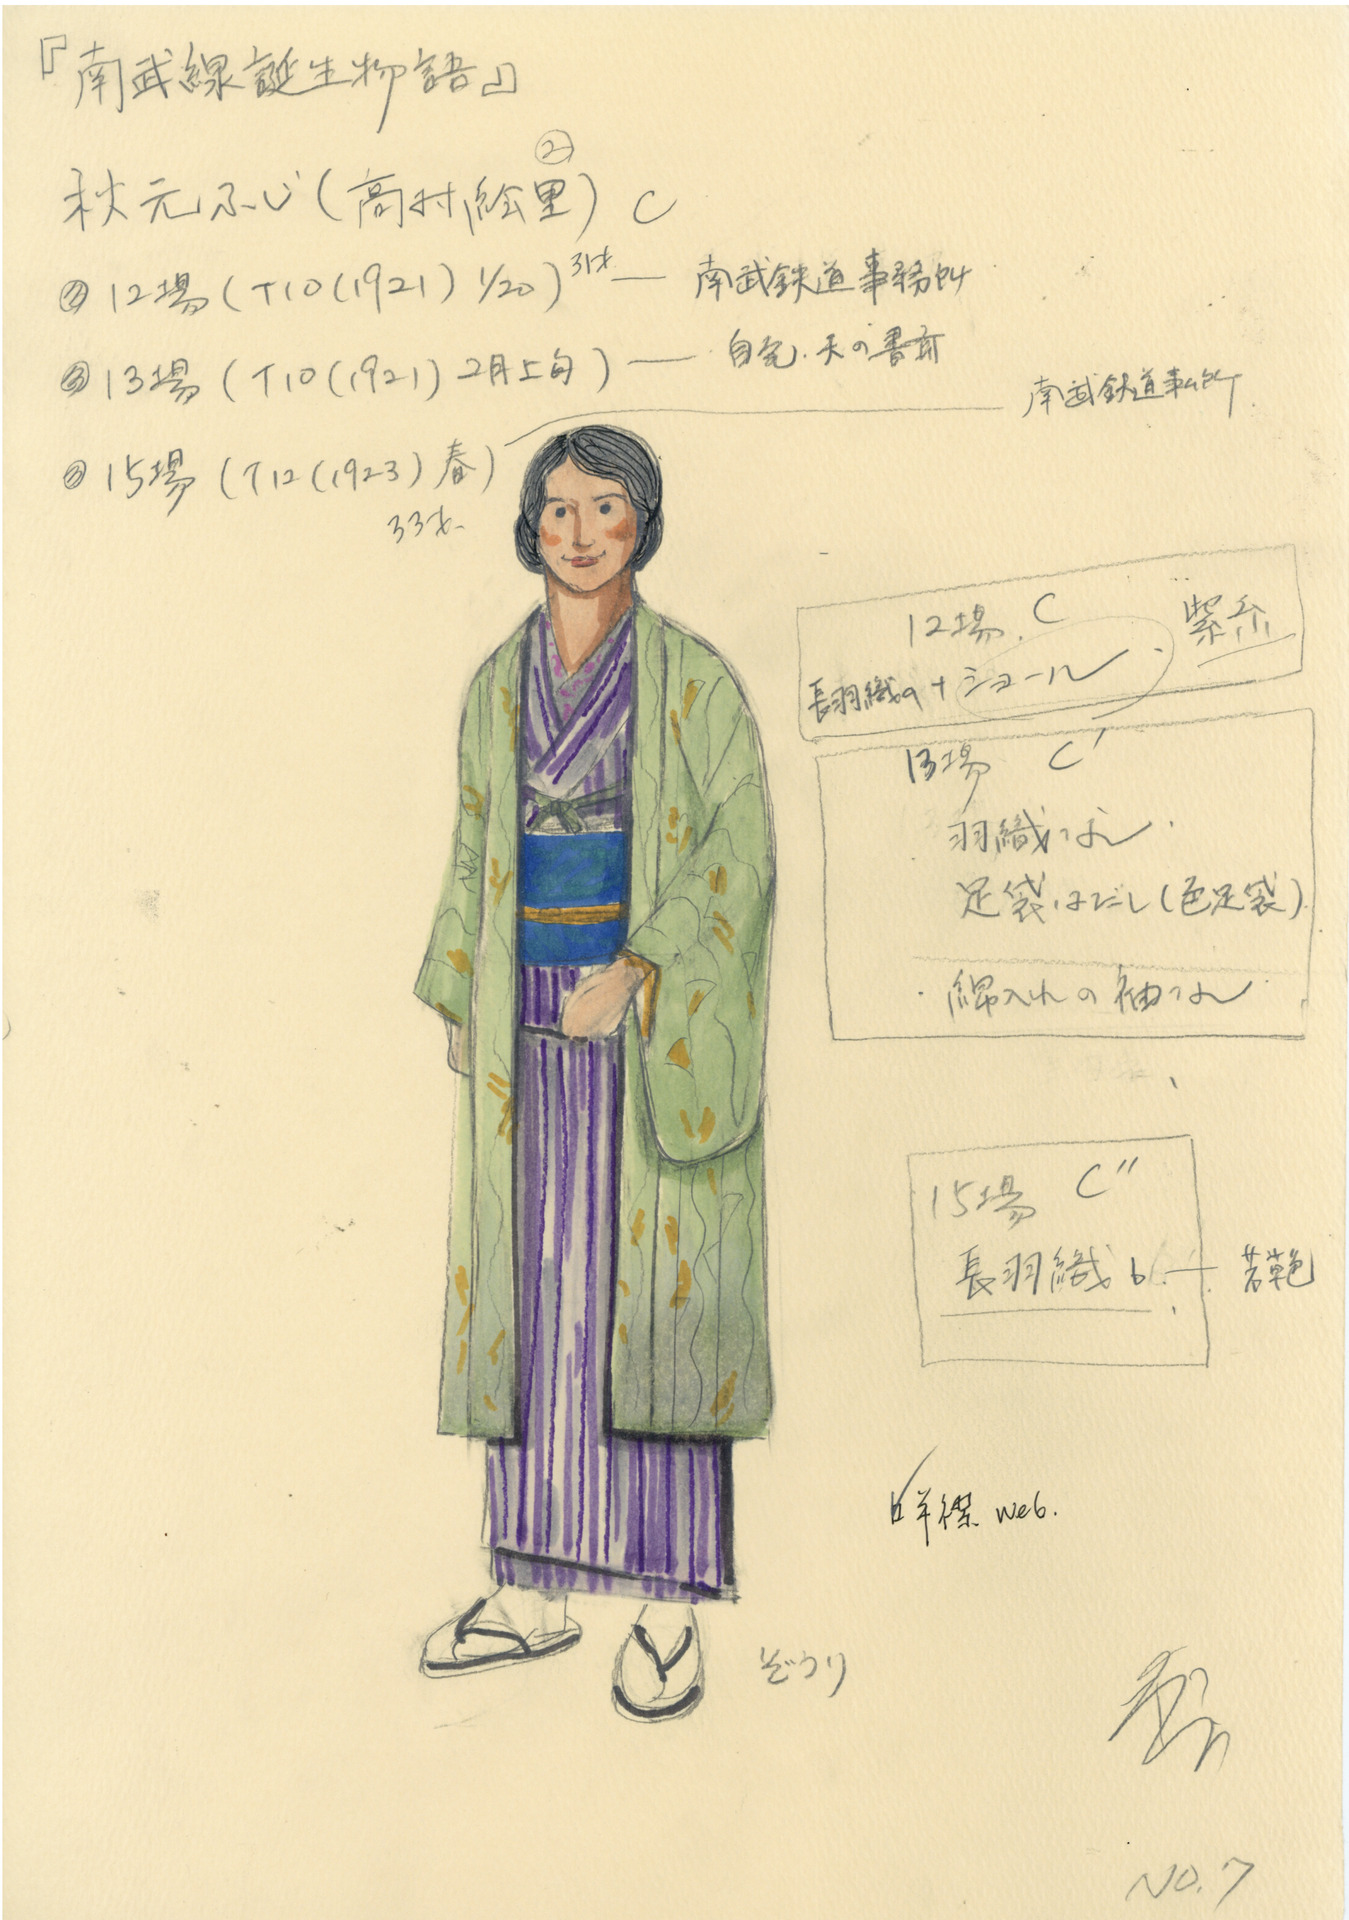 『南武線誕生物語』
②
秋元ふじ(高村絵里) C
② 12場(T10(1921) 1/20) 31才 — 南武鉄道事務所
③ 13場(T10(1921) 2月上旬) — 自宅.夫の書斎
15場(T12(1923)春) 南武鉄道事ム所
33才
12場. C 紫系
長羽織a+ショール
13場 C'
羽織なし
足袋はだし(色足袋)
・綿入れの袖なし
15場 C''
長羽織b — 若草色
半襟 web.
ぞうり
NO.7